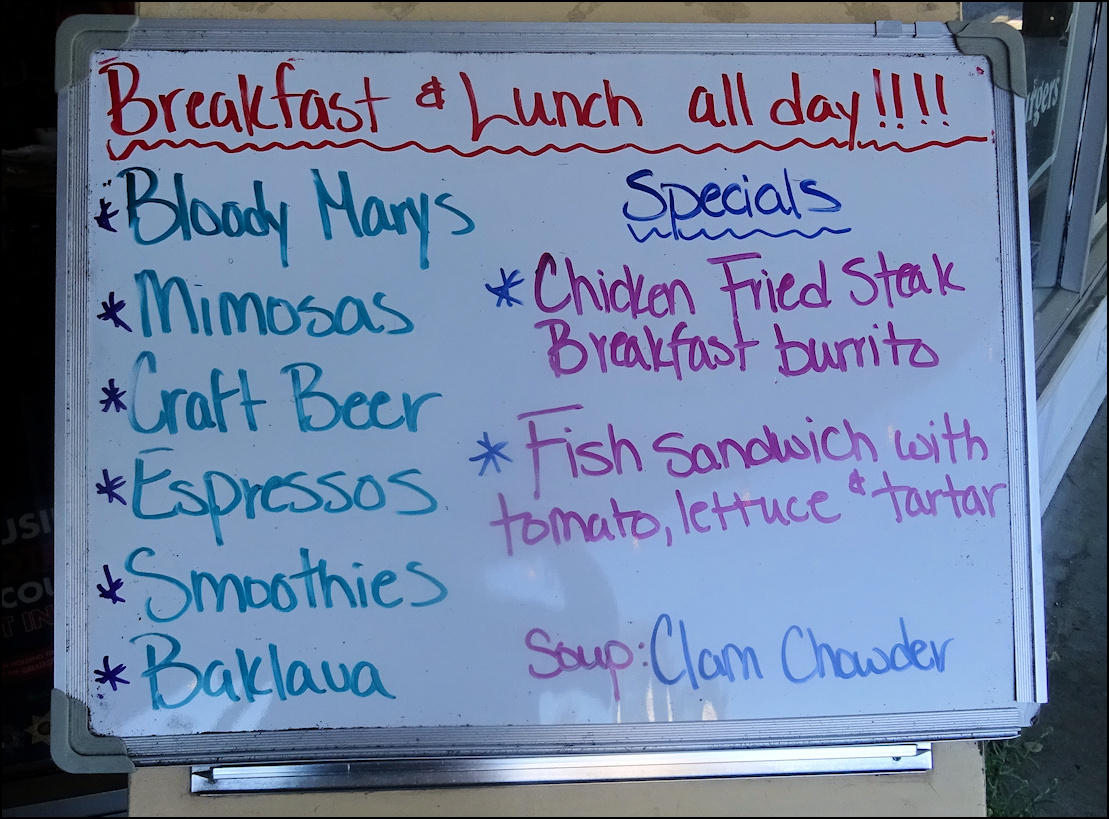 Breakfast & Lunch all day!!!!
* Bloody Marys
* Mimosas
* Craft Beer
* Espressos
* Smoothies
* Baklava
Specials
* Chicken Fried Steak
Breakfast burrito
* Fish sandwich with
tomato, lettuce & tartar
Soup: Clam Chowder